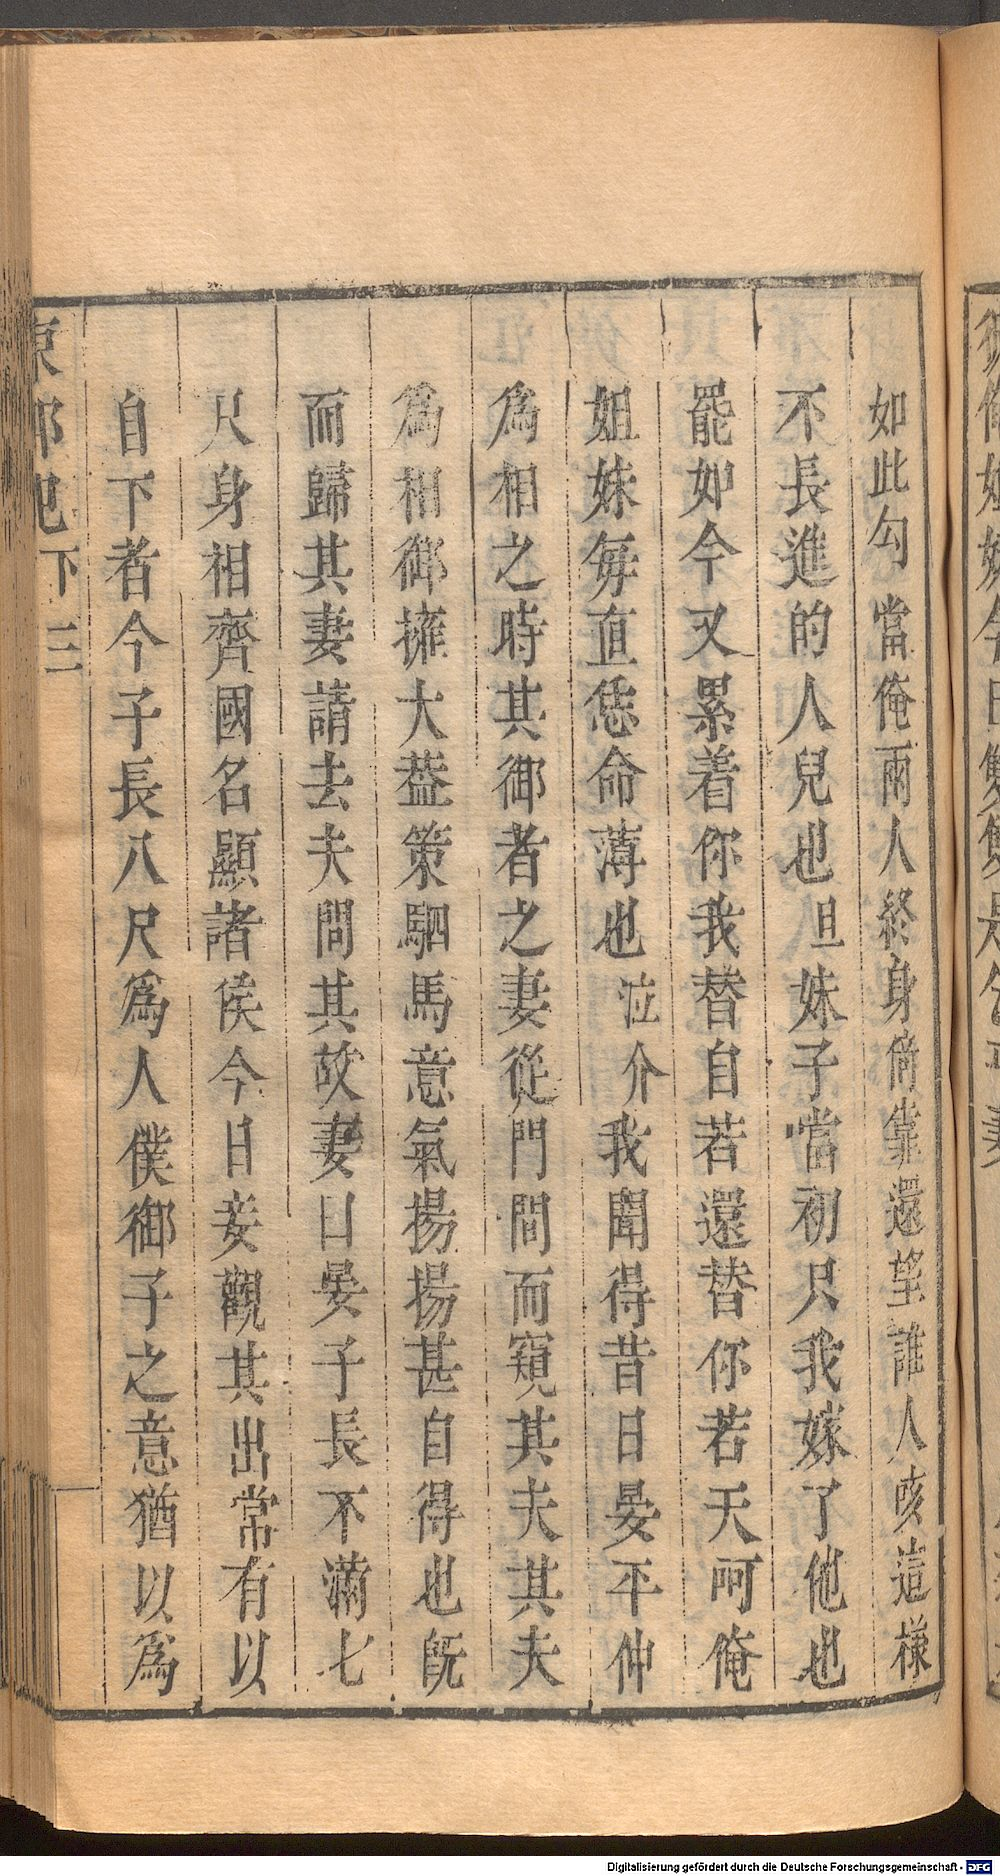 如此勾當俺兩人終身倚靠還望誰人咳這樣
不長進的人兒也且妹子當初只我嫁了他也
罷如今又累着你我替自若還替你若天呵俺
姐妹每直恁命薄也泣介我聞得昔日晏平仲
爲相之時其御者之妻從門間而窺其夫其夫
爲相御擁大葢策駟馬意氣揚揚甚自得也旣
而歸其妻請去夫問其故妻曰晏子長不滿七
尺身相齊國名顯諸侯今日妾觀其出常有以
自下者今子長八尺爲人僕御子之意猶以爲
東郭記下 三
Digitalisierung gefördert durch die Deutsche Forschungsgemeinschaft - DFG